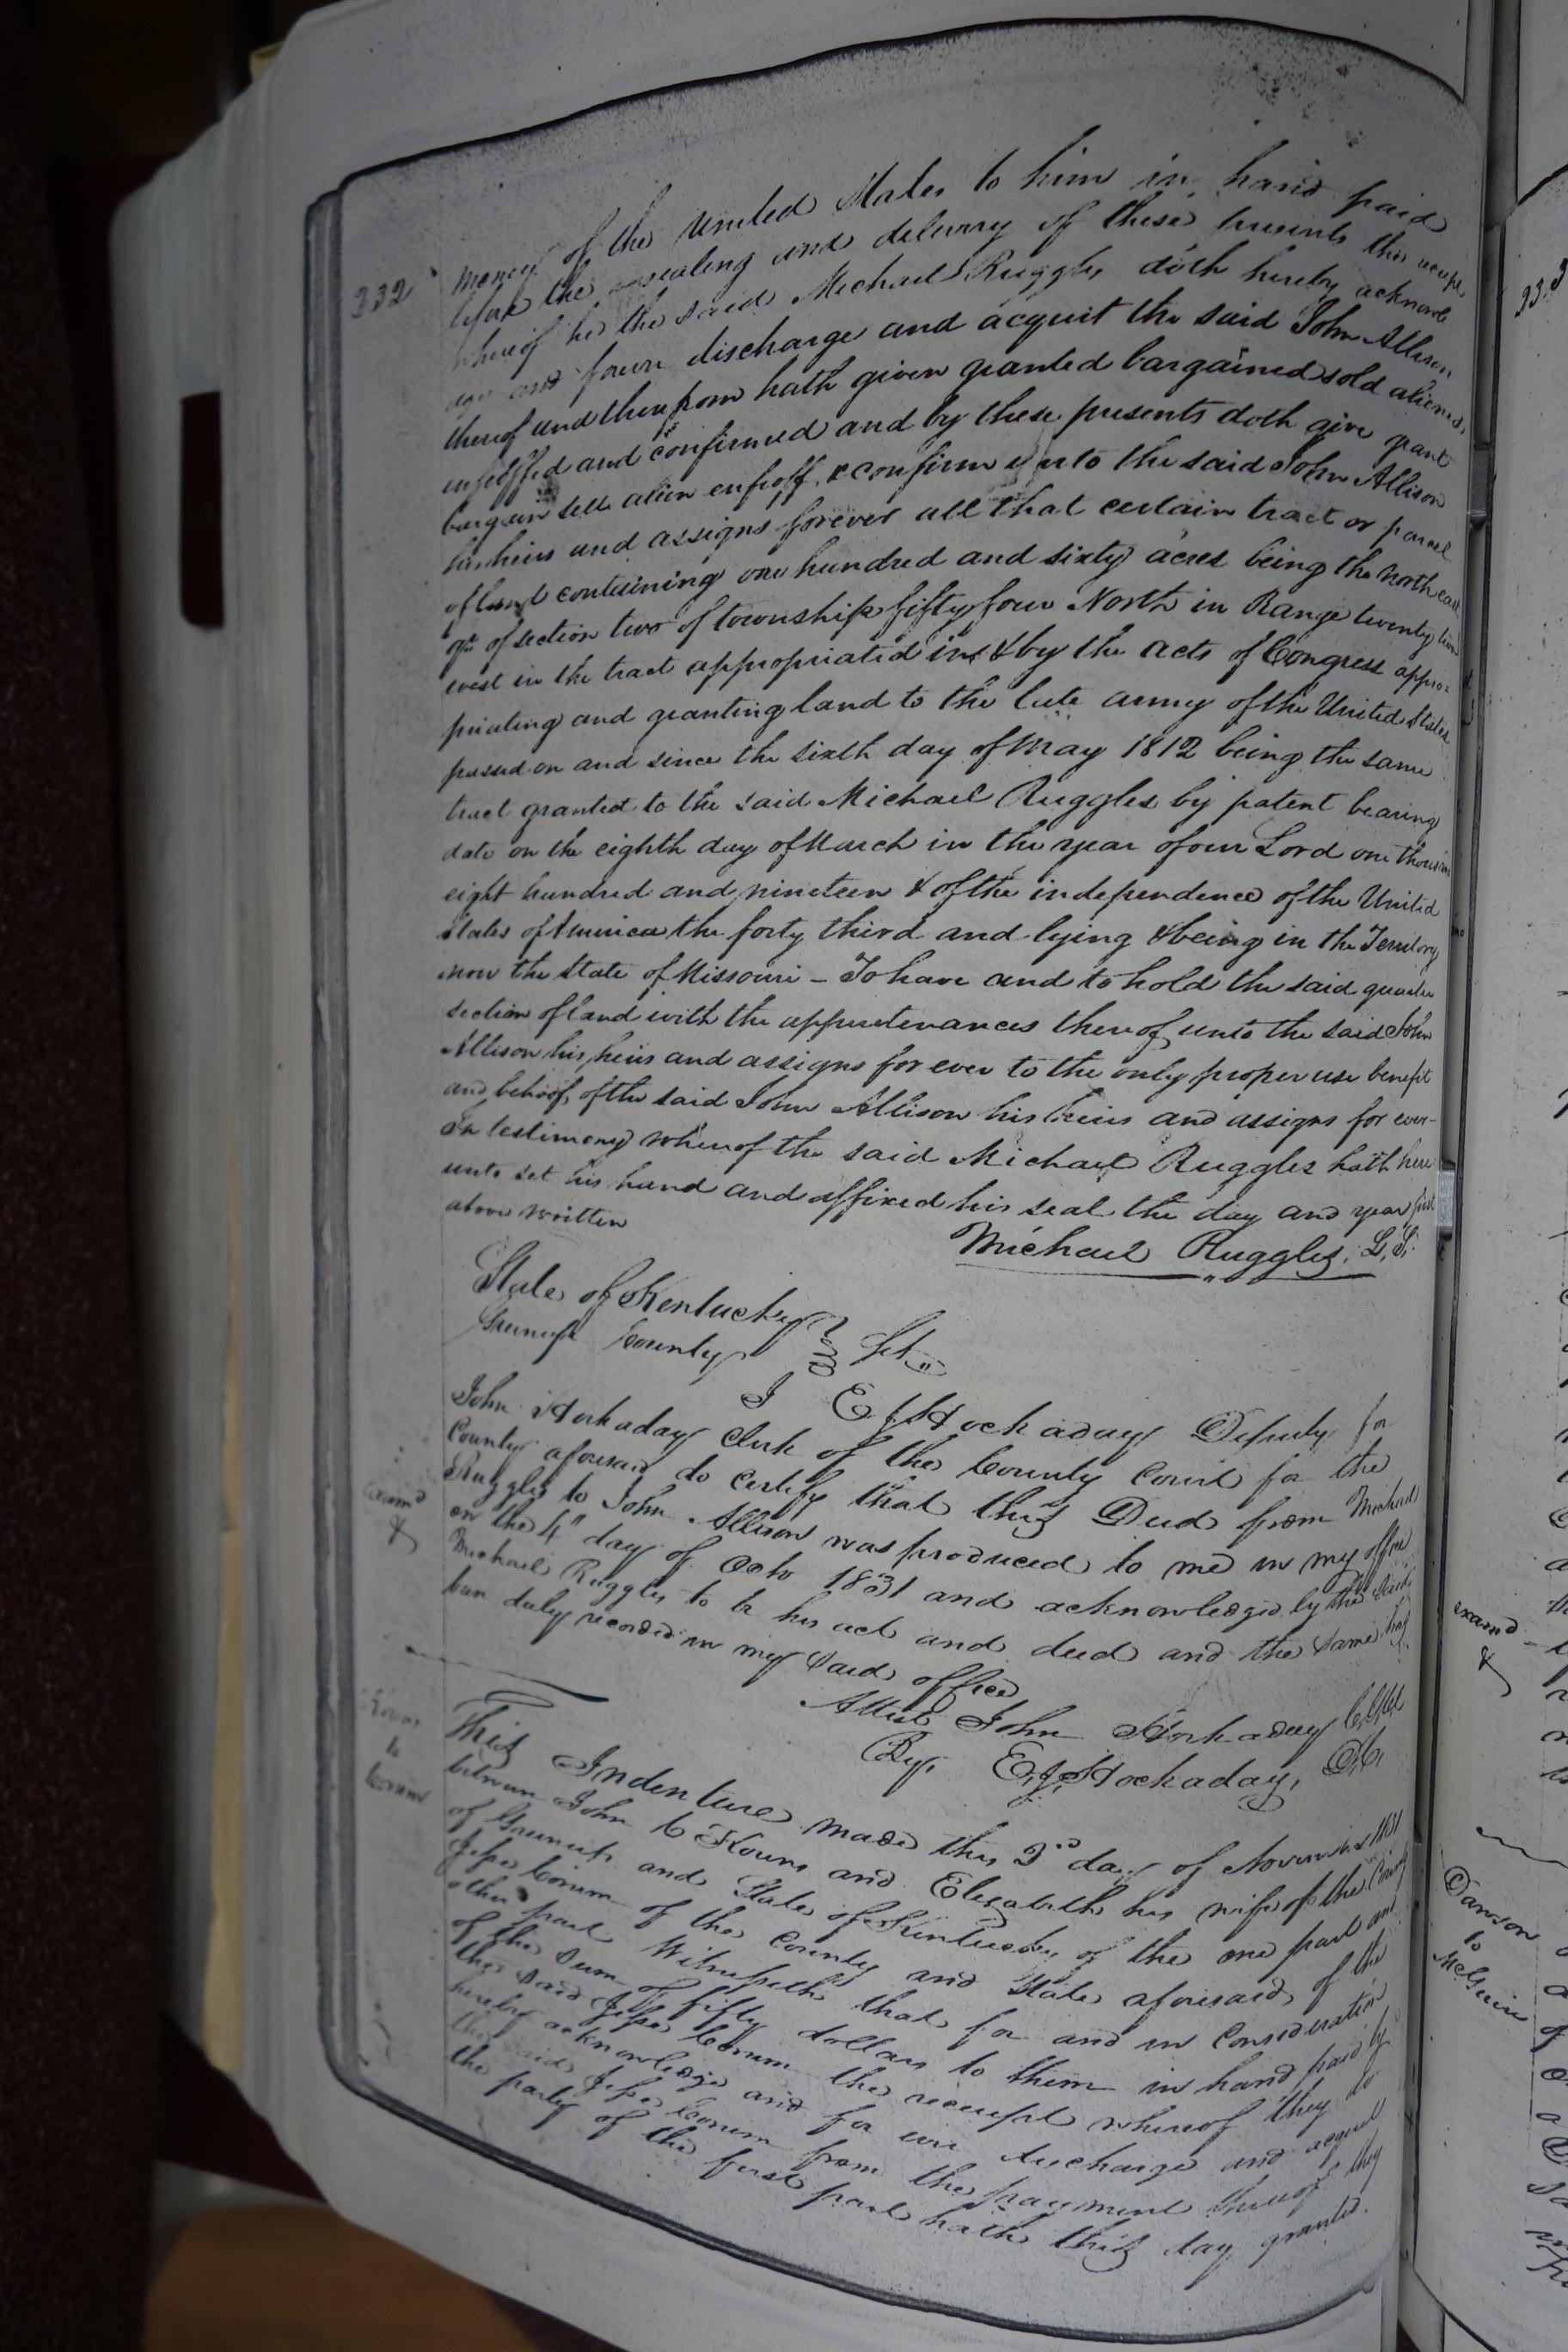 332
money of the United States to him in hand paid
before the sealing and delivery of these presents the receipt
whereof he the said Michael Ruggles doth hereby acknowle
dge and forever discharge and acquit the said John Allison
thereof and therefrom hath given granted bargained sold aliened,
enfeoffed and confirmed and by these presents doth give grant
bargain sell alien enfeoff & confirm unto the said John Allison
his heirs and assigns forever all that certain tract or parcel
of land containing one hundred and sixty acres being the north east
qr. of section two of township fifty four North in Range twenty
west in the tract appropriated in & by the acts of Congress appro=
priating and granting land to the late army of the United States
passed on and since the sixth day of May 1812 being the same
tract granted to the said Michael Ruggles by patent bearing
date on the eighth day of March in the year of our Lord one thousand
eight hundred and nineteen & of the independence of the United
States of America the forty third and lying & being in the Territory
now the State of Missouri - To have and to hold the said quarter
section of land with the appurtenances thereof unto the said John
Allison his heirs and assigns for ever to the only proper use benefit
and behoof, of the said John Allison his heirs and assigns for ever-
In testimony whereof the said Michael Ruggles hath here
unto set his hand and affixed his seal the day and year first
above written
Michael Ruggles. L.S.
State of Kentucky
Greenup County Sct.
I E J Hockaday Deputy for
John Hockaday Clerk of the County Court for the
County aforesaid do certify that this Deed from Michael
Ruggles to John Allison was produced to me in my office
on the 4th day of Octo 1831 and acknowledged by the said
Michael Ruggles to be his act and deed and the same has
been duly recorded in my said office
Attest John Hockaday
By, E. J. Hockaday, D.C.
examd
&
Kouns
to
Corum
This Indenture made this 3rd day of November 1831
between John C Kouns and Elizabeth his wife of the County
of Greenup and State of Kentucky of the one part and
Jesse Corum of the County and State aforesaid of the
other part Witnesseth that for and in Consideration
of the Sum of fifty dollars to them in hand paid by
the said Jesse Corum the receipt whereof they do
hereby acknowledge and for ever discharge and acquit
the said Jesse Corum from the payment thereof they
the party of the first part hath this day granted.
333
examd
&
Dawson
to
McGuire